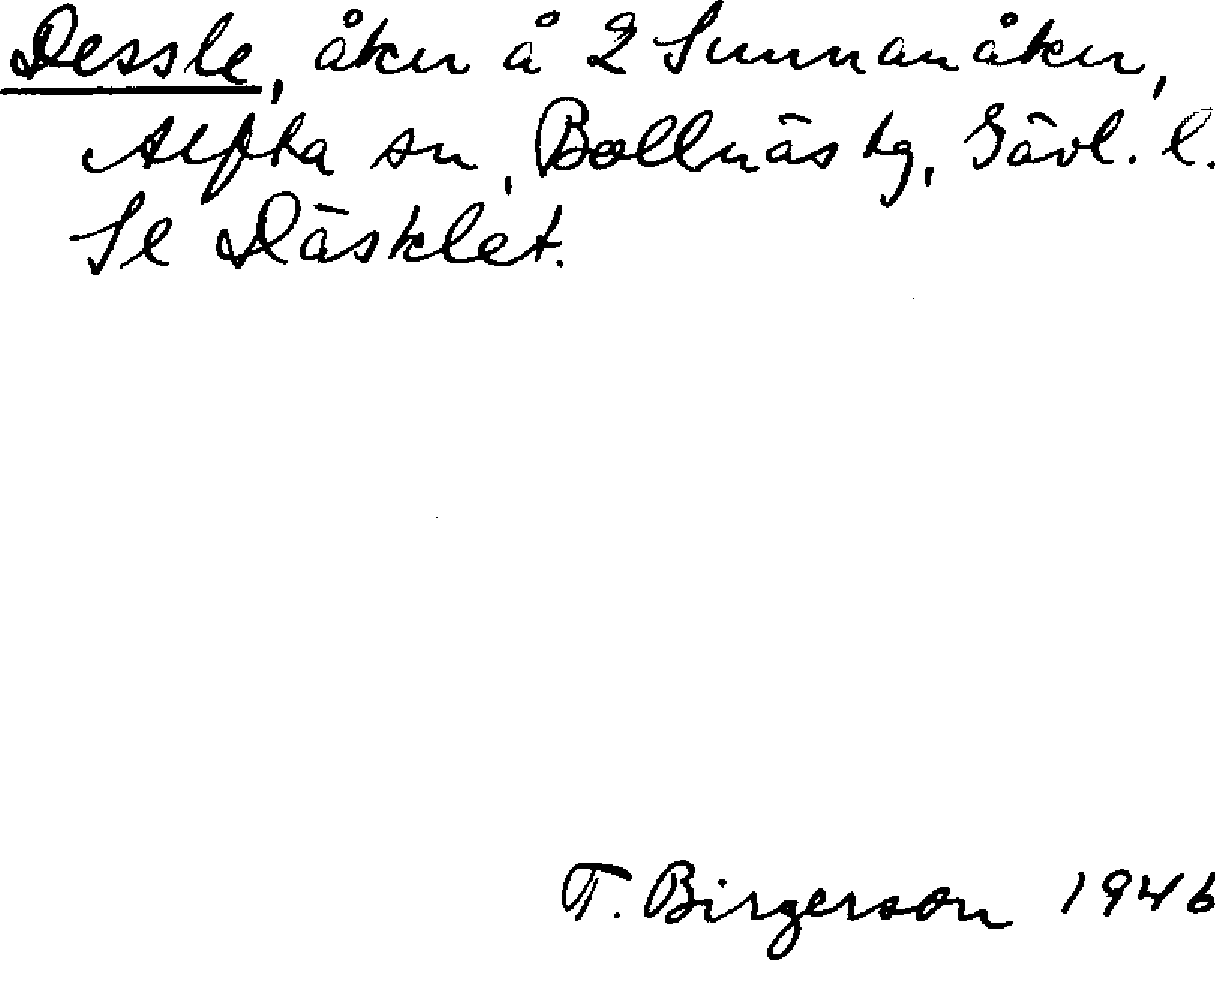 Dessle, åker å 2 Sunnanåker,
Alfta sn, Bollnäs tg, Gävl. l.
Se Däsklet.
T. Birgerson 1946